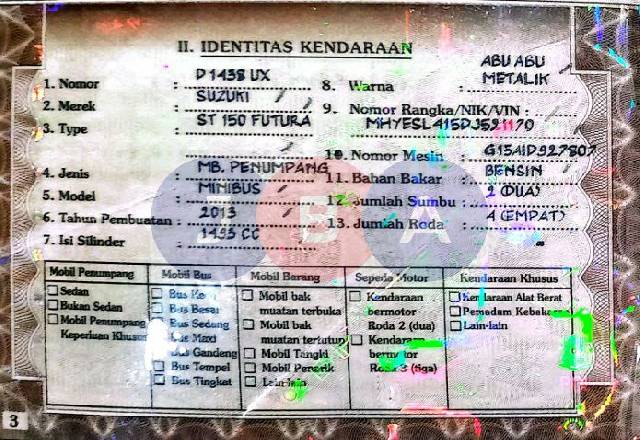 II. IDENTITAS KENDARAAN
1. Nomor : D 1438 UX
2. Merek : SUZUKI
3. Type : ST 150 FUTURA
4. Jenis : MB. PENUMPANG
5. Model : MINIBUS
6. Tahun Pembuatan : 2013
7. Isi Silinder : 1493 CC
8. Warna : ABU ABU
METALIK
9. Nomor Rangka/NIK/VIN :
MHYESL415DJ521170
10. Nomor Mesin : G15AID927807
11. Bahan Bakar : BENSIN
12. Jumlah Sumbu : 2 (DUA)
13. Jumlah Roda : 4 (EMPAT)
JBA
Mobil Penumpang
Sedan
Bukan Sedan
Mobil Penumpang
Keperluan Khusus
Mobil Bus
Bus Kecil
Bus Besar
Bus Sedang
Bus Maxi
Bus Gandeng
Bus Tempel
Bus Tingkat
Mobil Barang
Mobil bak
muatan terbuka
Mobil bak
muatan tertutup
Mobil Tangki
Mobil Penarik
Lain-lain
Sepeda Motor
Kendaraan
bermotor
Roda 2 (dua)
Kendaraan
bermotor
Roda 3 (tiga)
Kendaraan Khusus
Kendaraan Alat Berat
Pemadam Kebakaran
Lain-lain
3